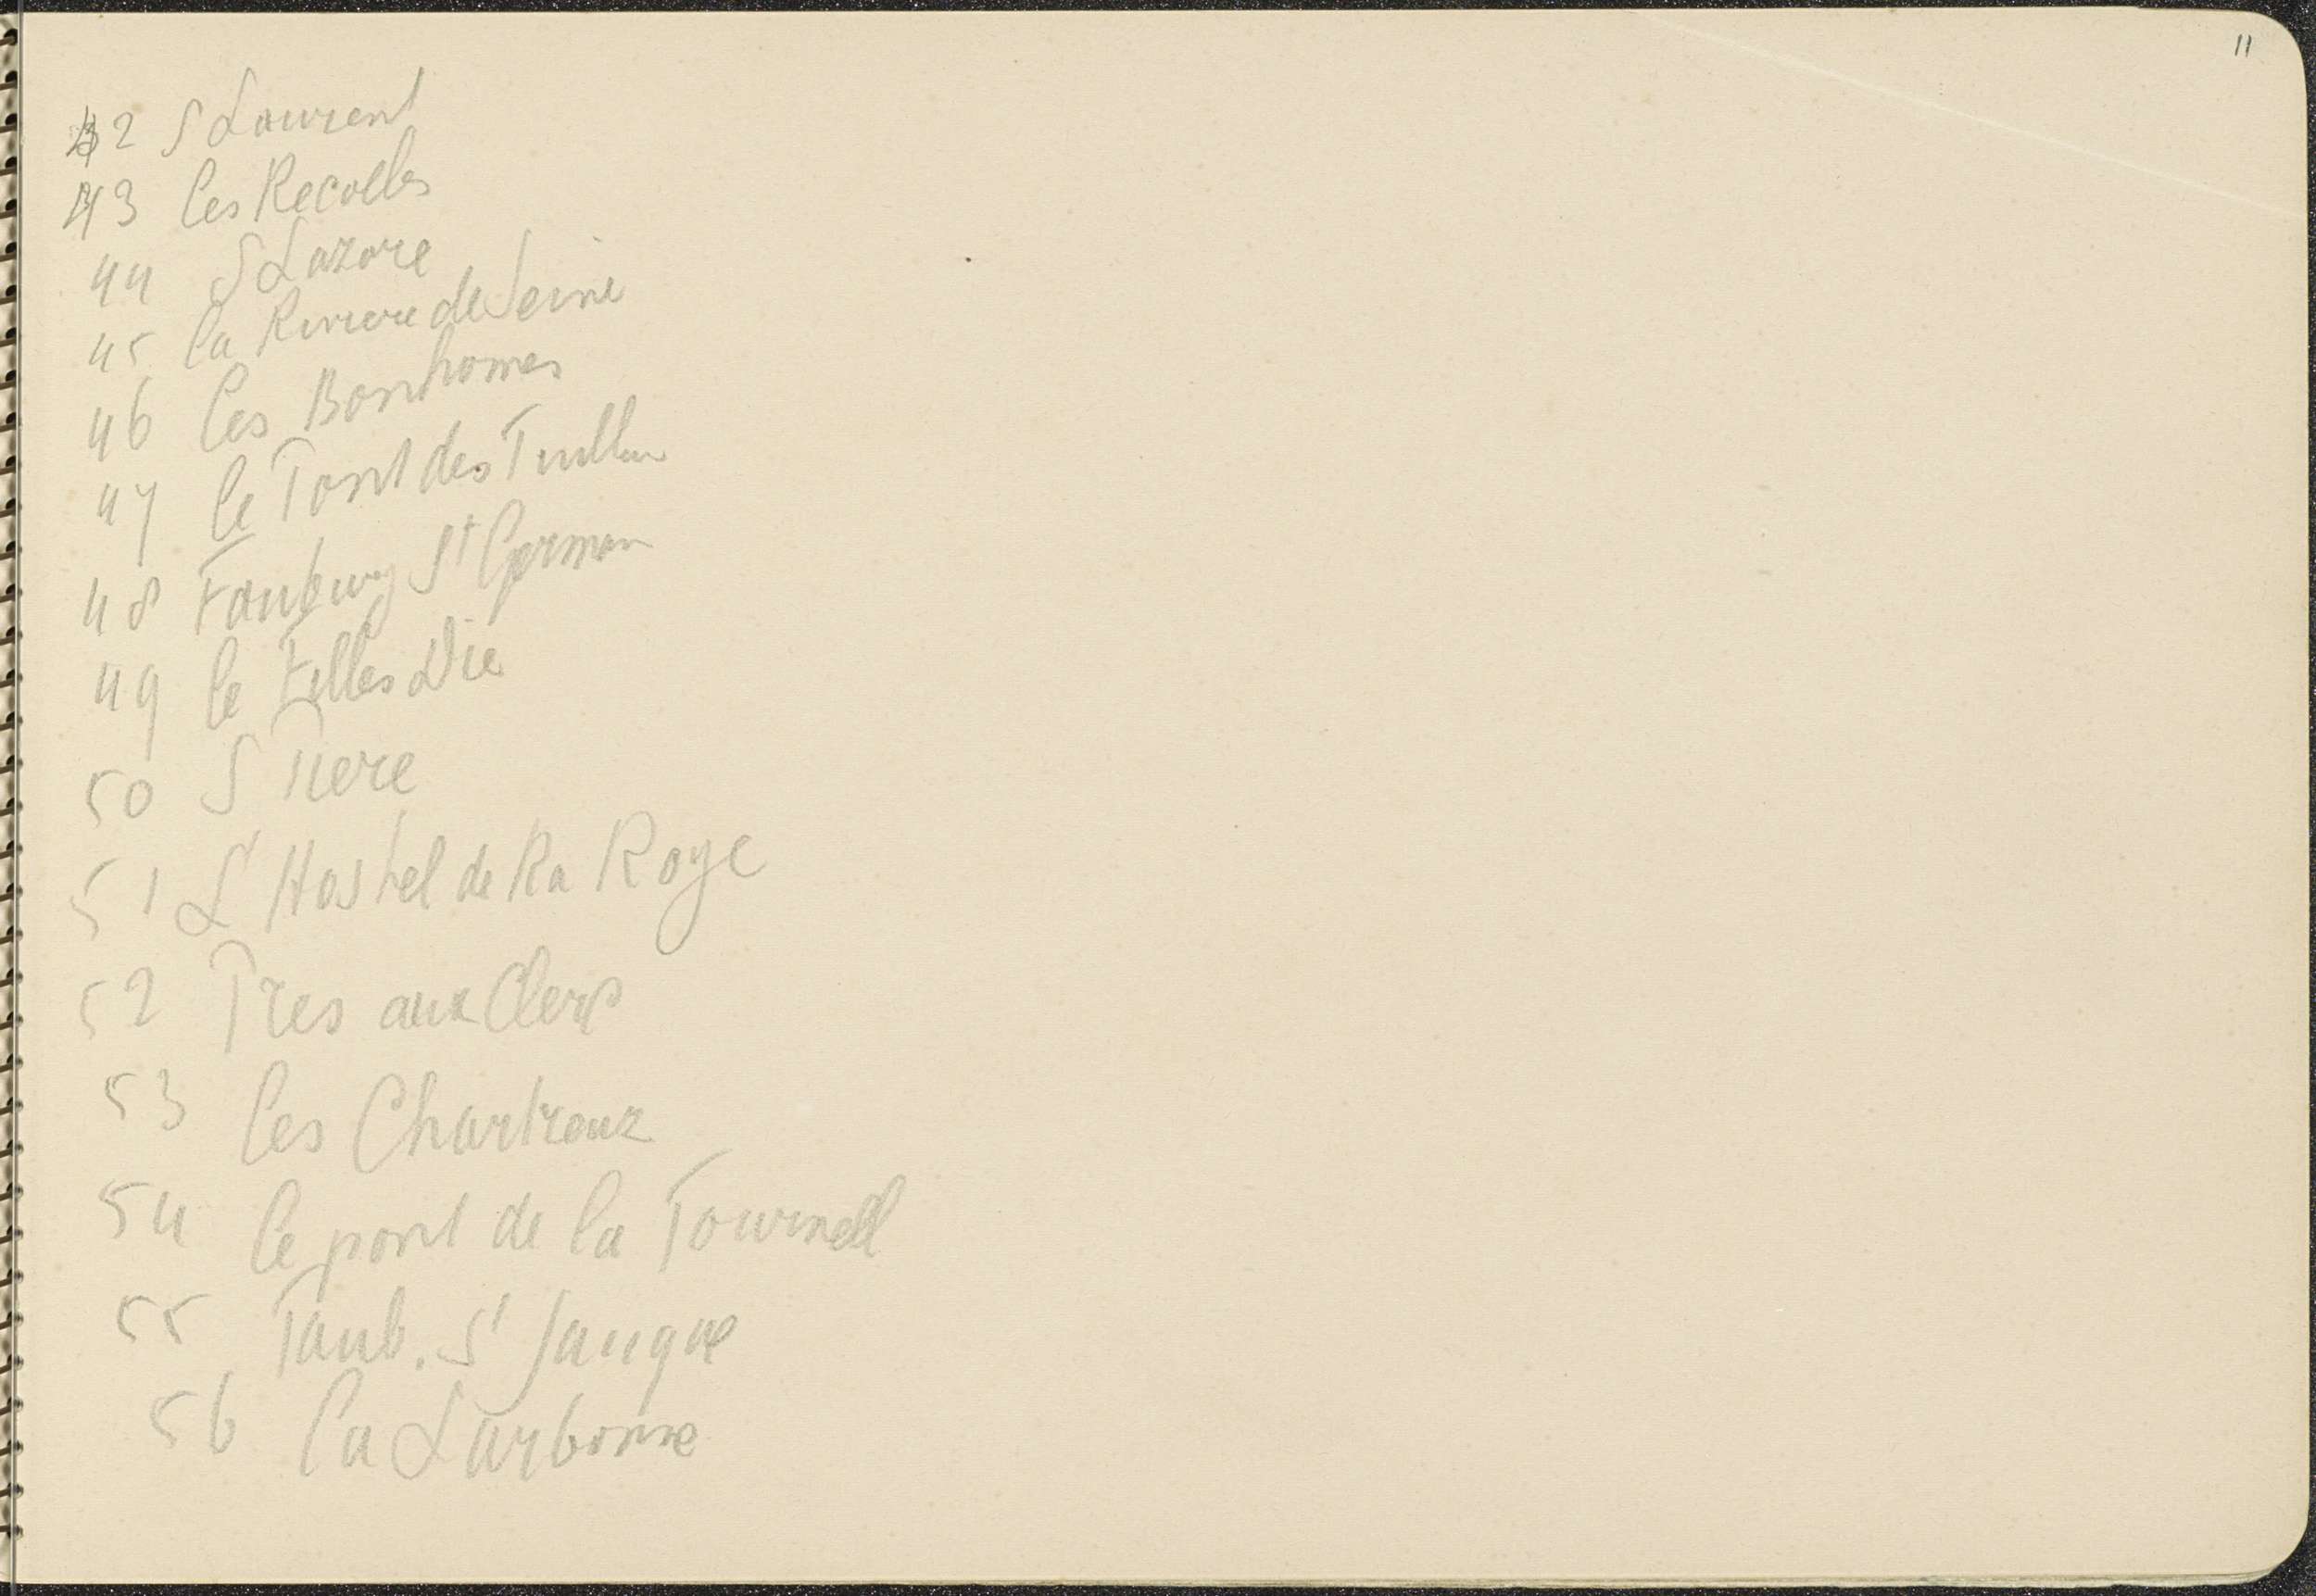 11
42 S Laurent
43 les Recolles
44 S Lazare
45 la Riviere de Seine
46 les Bonhomes
47 le Pont des Tuill
48 Faubourg St German
49 le Filles Die
50 S Piere
51 L'Hostel de Ra Roye
52 Pres aux Clerp
53 les Chartreux
54 le pont de la Tournell
55 Faub. S' Jauque
56 la Sarbonne